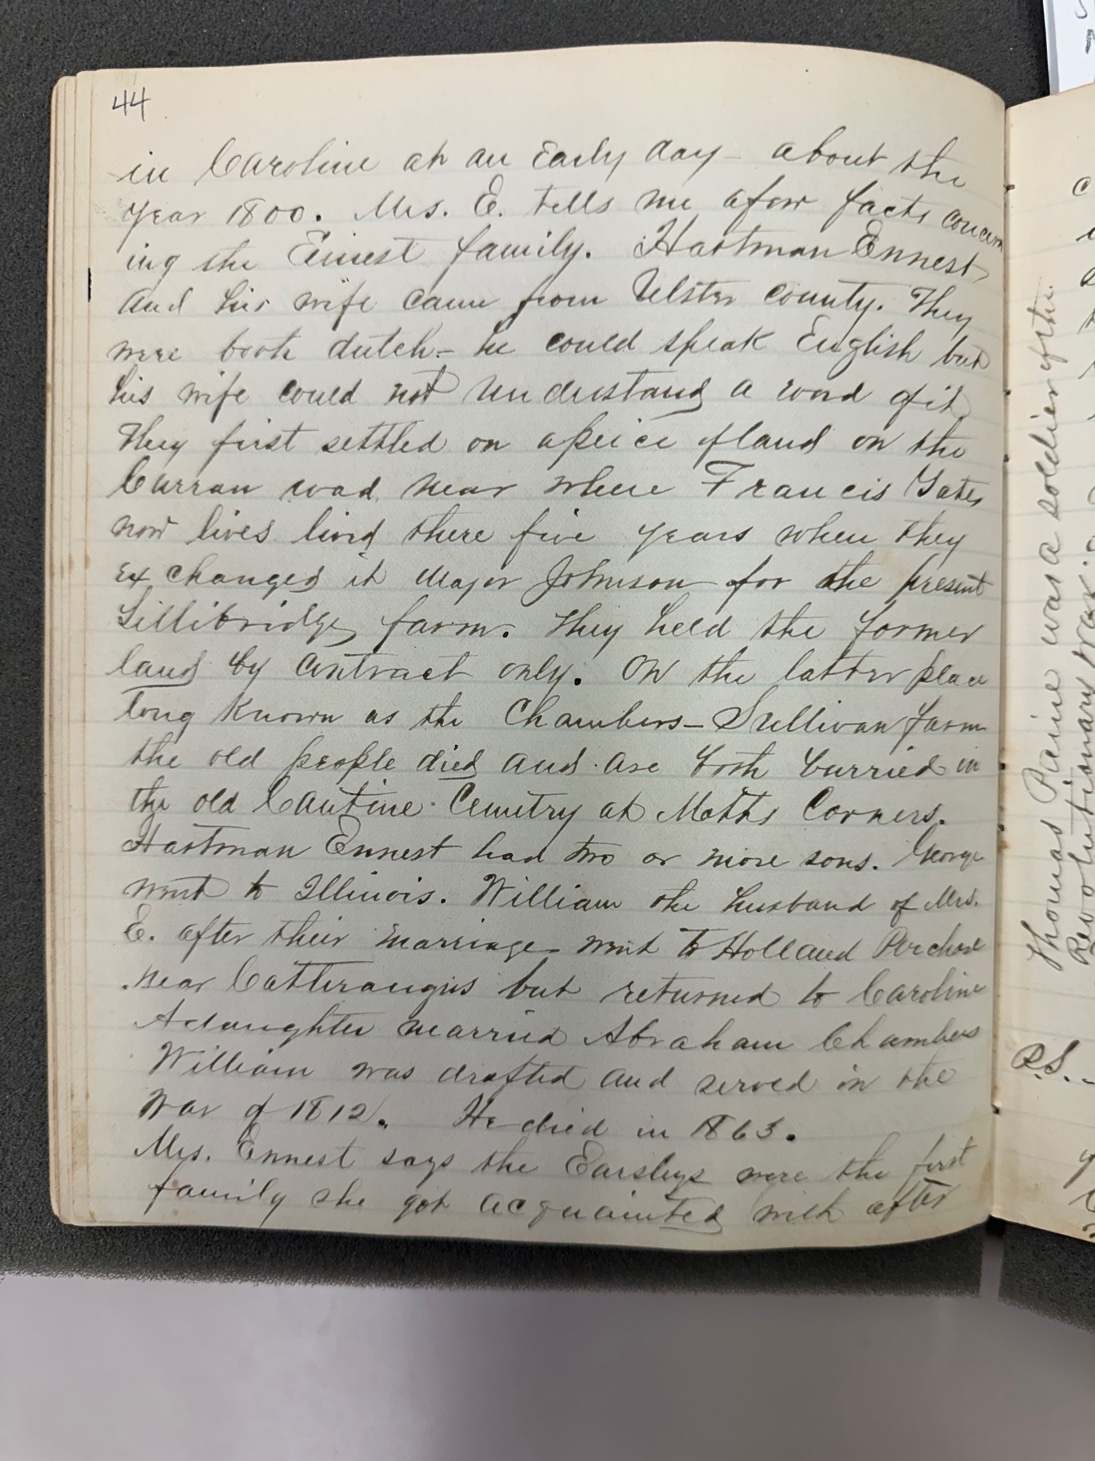 44
in Caroline at an Early day - about the
year 1800. Mrs. E. tells me afew facts concern
ing the Ennest family. Hartman Ennest
and his wife came from Ulster county. They
were both dutch - he could speak English but
his wife could not understand a word of it
They first settled on apeice of land on the
Curran road near where Francis Gates
now lives livd there five years when they
exchanged it Major Johnson for the present
Lillibridge farm. They held the former
land by contract only. On the latter place
long known as the Chambers-Sullivan farm
the old people died and are both burried in
the old Cantine Cemetry at Motts Corners.
Hartman Ennest had two or more sons. George
went to Illinois. William the husband of Mrs.
E. after their marriage went to Holland Perchase
near Catteraugus but returned to Caroline
A daughter married Abraham Chambers
William was drafted and served in the
War of 1812. He died in 1863.
Mrs. Ennest says the Earsleys were the first
family she got acquainted with after
Thomas Paine was a soldier of the
Revolutionary War.
P.S.